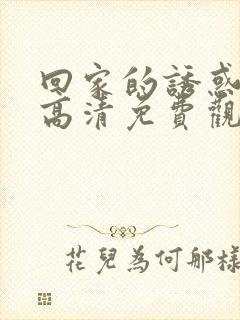 回家的誘惑
高清免費觀
花兒為何那樣